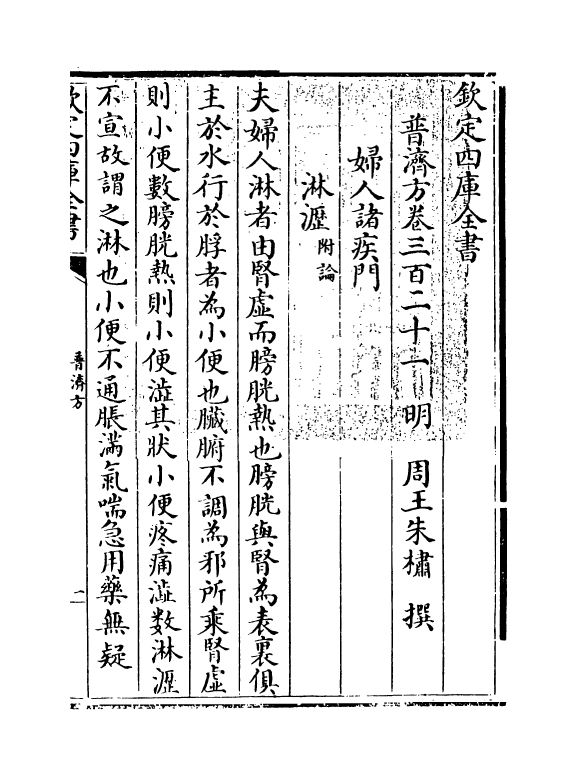 欽定四庫全書
普濟方卷三百二十一 明 周王朱橚 撰
婦人諸疾門
淋瀝附論
夫婦人淋者由腎虛而膀胱熱也膀胱與腎為表裏俱
主於水行於脬者為小便也臟腑不調為邪所乘腎虛
則小便數膀胱熱則小便澁其狀小便疼痛澁數淋瀝
不宣故謂之淋也小便不通脹滿氣喘急用藥無疑
欽定四庫全書
普濟方
二